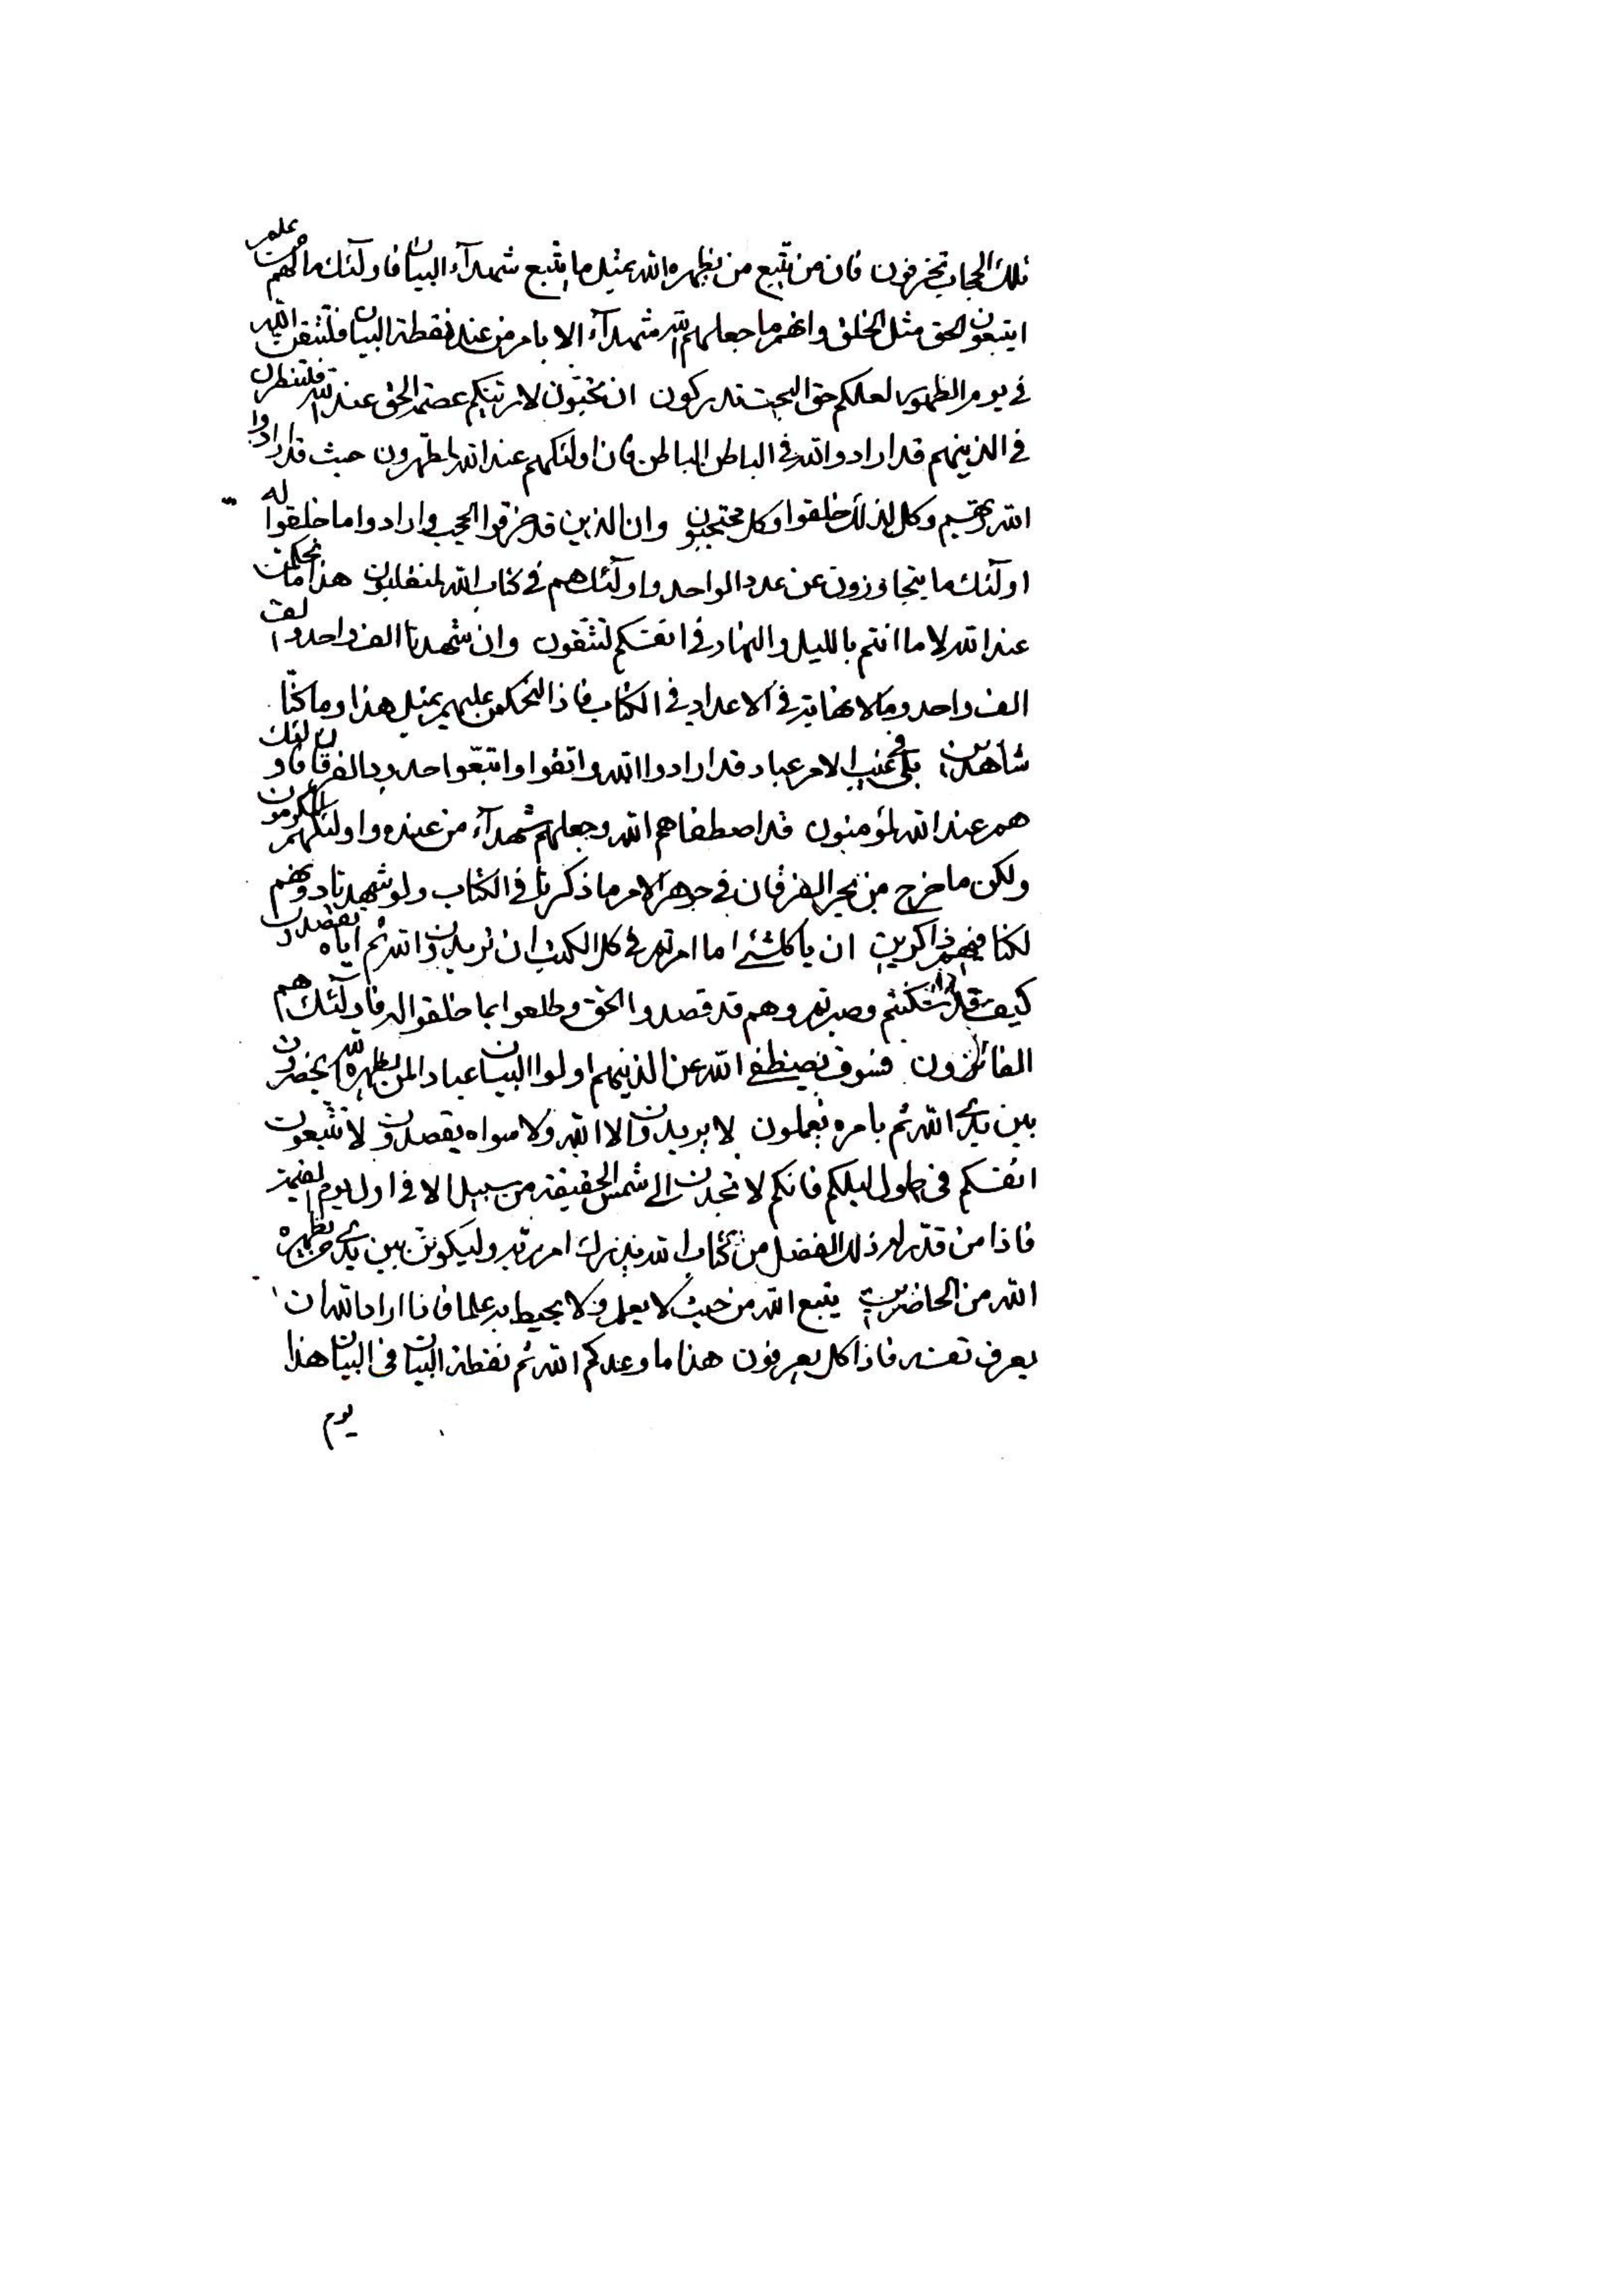 تلك الحجاب تخرقون فان من يتبع من يظهره الله بمثل ما يتبع شهدآء البيان فاولئك ما لهم من علم
ايتبعون الحق مثل الخلق وانهم ما جعلهم الله شهدآء الا بامر من عند نقطة البيان فلتتقن الله
في يوم الظهور لعلكم حق البحت تدركون ان تحبون لا يرتبكم عصمة الحق عند الله فلتنظرن
في الذينهم قد ارادوا الله في الباطن الباطن فان اولئكهم عند الله لمطهرون حيث قد ارادوا
الله ربهم وكل لذلك خلقوا وكل محتجبون وان الذين قد خرقوا الحجب وارادوا ما خلقوا له
اولئك ما يتجاوزون عن عدد الواحد واولئك هم في كتاب الله لمنقلبون هذا ما تحكمن
عند الله لا ما انتم بالليل والنهار في انفسكم لتتقون وان شهدنا الف واحد والف
الف واحد وما لا نهاية في الاعداد في الكتاب فاذا لنحكمن عليهم بمثل هذا وما كنا
شاهدين بلى في غيب الامر عباد قد ارادوا الله واتقوا واتبعوا حدود الفرقان فاولئك
هم عند الله لمؤمنون قد اصطفاهم الله وجعلهم شهدآء من عنده واولئكهم المكرمون
ولكن ما خرج من بحر الفرقان في جوهر الامر ما ذكرنا في الكتاب ولو شهدنا دونهم
لكنا فيهم ذاكرين ان يا كلشئ اما امرتم في كل الكتب ان تريدون الله ثم اياه تقصدون
كيف قد سكنتم وصبرتم وهم قد قصدوا الحق وطلعوا بما خلقوا له فاولئك هم
الفائزون فسوف يصطفى الله عن الذينهم اولوا البيان عبادا لمن يظهره الله يحضرون
بين يدي الله ثم بامره يعملون لا يريدون الا الله ولا سواه يقصدون لا تتبعون
انفسكم في طول ليلكم فانكم لا تجدن الى شمس الحقيقة من سبيل الا في اول يوم القيمة
فاذا من قدر له ذلك الفضل من كتاب الله فيدرك امر ربه وليكونن بين يدي من يظهره
الله من الحاضرين يتبع الله من حيث لا يعلم ولا يحيط به علما فاذا اراد الله ان
يعرف نفسه فاذا كل يعرفون هذا ما وعدكم الله ثم نقطة البيان في البيان هذا
يوم